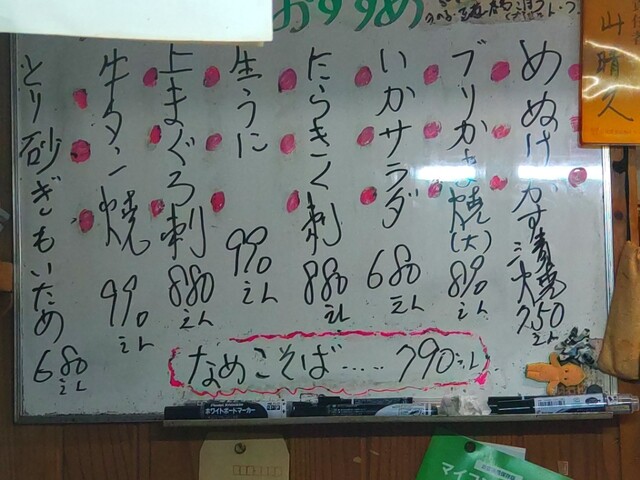 おすすめ
めぬけかす漬焼 750えん
ブリかま焼(大) 890えん
いかサラダ 680えん
たらきく刺 880えん
生うに 990えん
上まぐろ刺 880えん
牛タン焼 990えん
とり砂ぎもいため 680えん
なめこそば..... 790えん
山晴久
ホワイトボードマーカー